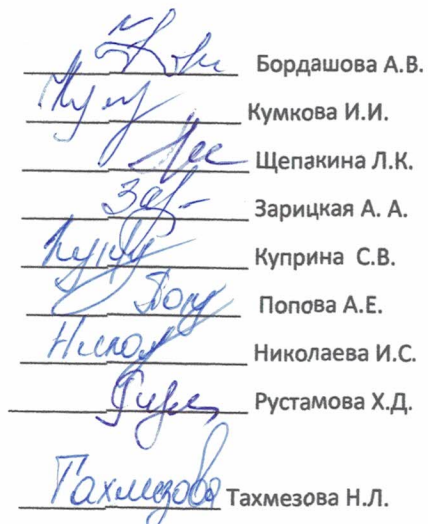 Бордашова А.В.
Кумкова И.И.
Щепакина Л.К.
Зарицкая А. А.
Куприна С.В.
Попова А.Е.
Николаева И.С.
Рустамова Х.Д.
Тахмезова Тахмезова Н.Л.